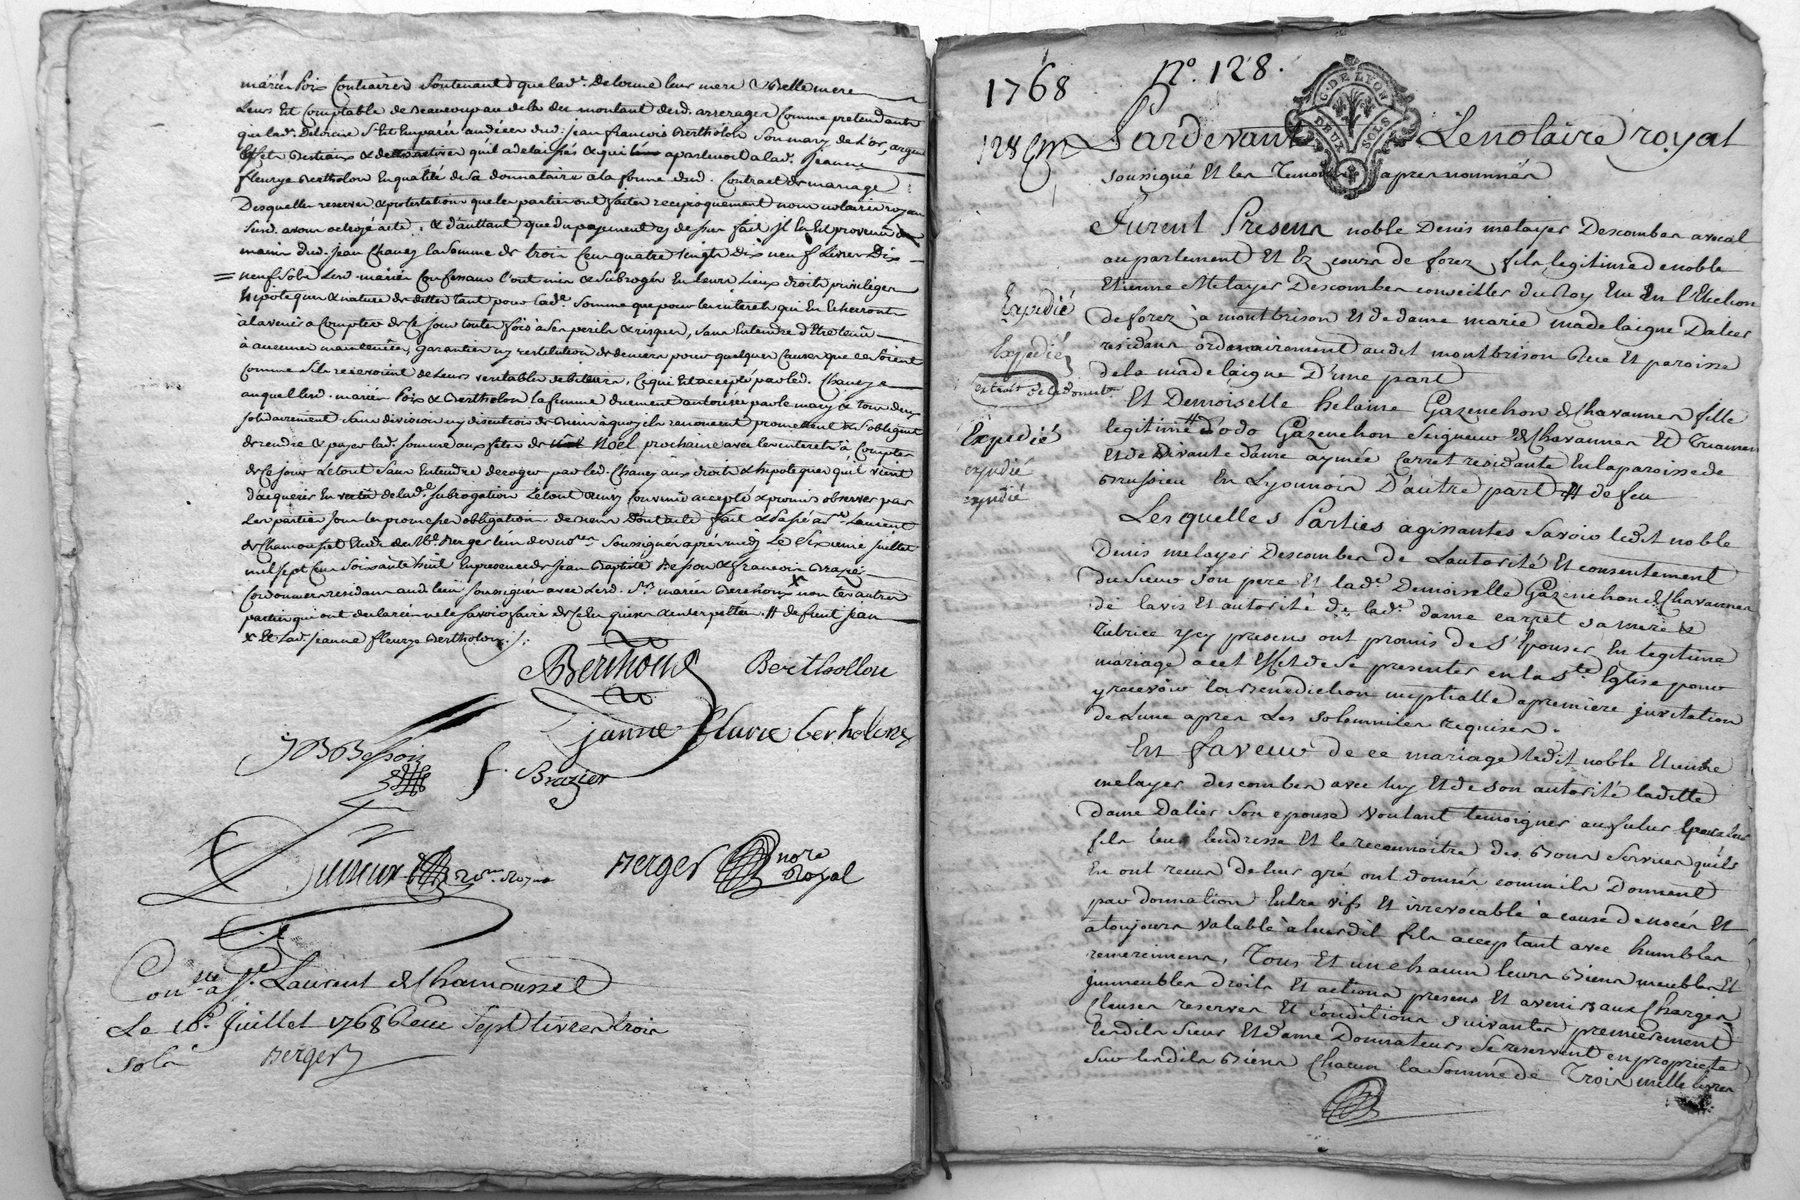 mariés Foix Contraires Soutenant que lad.e Delorme leur mere & Belle mere
Leurs Est Comptable de Beaucoup au dela du montant desd. arrerages Comme pretendants
que lad.e Delorme S'est Emparée au décès dud. jean françois Bertholon Son mary de L'or, argent
Effets Bestiaux & qu'il a delaissés & qui apartenoit a lad. jeanne
fleurye Bertholon En qualité de Sa donnataire a la forme dud. Contract de mariage
Desquelles reserves & protestations que les parties ont faites reciproquement nous notaires royaux
Sus.d avons octroyé acte, & d'autant que du payement cy dessus fait Il En Est provenu des
mains dud. Jean Chavey la Somme de trois Cens quatre vingt Dix neuf Livres Dix
neuf Sols Lesd. mariés Confessans L'ont mis & Subrogé En leurs Lieux droits privileges
hipoteques & nature de dettes tant pour lad.e Somme que pour les interets qui En Echerront
à l'avenir a Compter de Ce jour toutes fois à Ses perils & risques, Sans Entendre d'Etre tenus
à aucunes maintenües, garanties ny restitution de deniers pour quelques Causes que ce Soient
Comme S'ils recevoient de Leurs veritables debiteurs, Ce qui Est accepté par led. Chavey
auquel lesd. mariés Foix & Bertholon la femme duement autorisée par le mary & tous deux
Solidairement Sans division ny discution de Biens à quoy ils renoncent promettent & S'obligent
de rendre & payer lad.e Somme aux fêtes de Noël prochaine avec les interets à Compter
de Ce jour Le tout Sans Entendre deroger par led. Chavey aux droits & hipoteques qu'il vient
d'acquerir En vertu de lad.e Subrogation Le tout Ainsy Convenu accepté & promis observer par
Les parties Sous les promesses obligation de Biens Dont acte fait & Passé a S.t Laurent
de Chamousset Etude de M.e Berger L'un des no.res Soussignés après midy Le Sixieme juillet
mil Sept Cens Soixante huit En presence de Jean Baptiste Besson & francois Brazier
Cordonniers residans aud. lieu Soussignés avec Lesd. S.rs mariés Berthoux x non les autres
parties qui ont declaré ne le Savoir faire de Ce Enquises & interpellées // de feu jean
x Et Lad. jeanne fleurye Bertholon ./.
Berthoud Berthollon
janne fluric bertholong
JB Besson
f. Brazier
no.re Roy.
Berger no.re
Royal
Con.lé a S.t Laurent de Chamousset
Le 16.e Juillet 1768 Receu Sept livres trois
sols Berger
1768 N.o 128.
128
G. DE LYON
DEUX SOLS
Pardevant Le notaire royal
soussigné Et les Temoins apres nommés
Furent Presens noble Denis melayer Descombes avocat
au parlement Et Ez cours de forez, fils legitime de noble
Etienne Melayer Descombes conseiller du Roy Elu En l'Election
de forez à montbrison Et de dame marie madelaigne Dalier
residans ordenairement audit montbrison Rue Et paroisse
de la madelaigne D'une part
Et Demoiselle helaine Gazenchon de Chavannes fille
legitime # D'odo Gazenchon Seigneur de Chavannes Et Truamen
Et de Vivante dame aymée Carret residante En la paroisse de
Brussieu En Lyonnois D'autre part // de feu
Lesquelles Parties agissantes Savoir ledit noble
Denis melayer Descombes de L'autorité Et consentement
du Sieur Son pere Et lad.e Demoiselle Gazenchon de Chavannes
de l'avis Et autorité de lad.e dame carret Sa mere &
tutrice icy presens ont promis de S'Epouser En legitime
mariage a cet Effet de Se presenter en la S.te Eglise pour
y recevoir la Bénédiction nuptialle a premiere invitation
de L'une apres Les solemnités requises.
En faveur de ce mariage ledit noble Etienne
melayer descombes avec luy Et de son autorité laditte
Dame Dalier Son epouse Voulant temoigner au futur Epoux leur
fils leur tendresse Et le reconnoitre des Bons Services qu'ils
En ont receus de leur gré ont donnés comme ils Donnent
par donnation Entre vifs Et irrevocable à cause de noces Et
a toujours valable a leurdit fils acceptant avec humbles
remerciemens, Tous Et un chacun leurs Biens meubles Et
immeubles droits Et actions presens Et avenirs aux Charges
Clauses reserves Et conditions suivantes premierement
lesdits Sieur Et Dame Donnateurs Se reservent en propriete
Sur lesdits Biens Chacun la Somme de Trois mille livres
Expedié
Expedié
extrait de la donnat.
Expedié
expdié
expdié